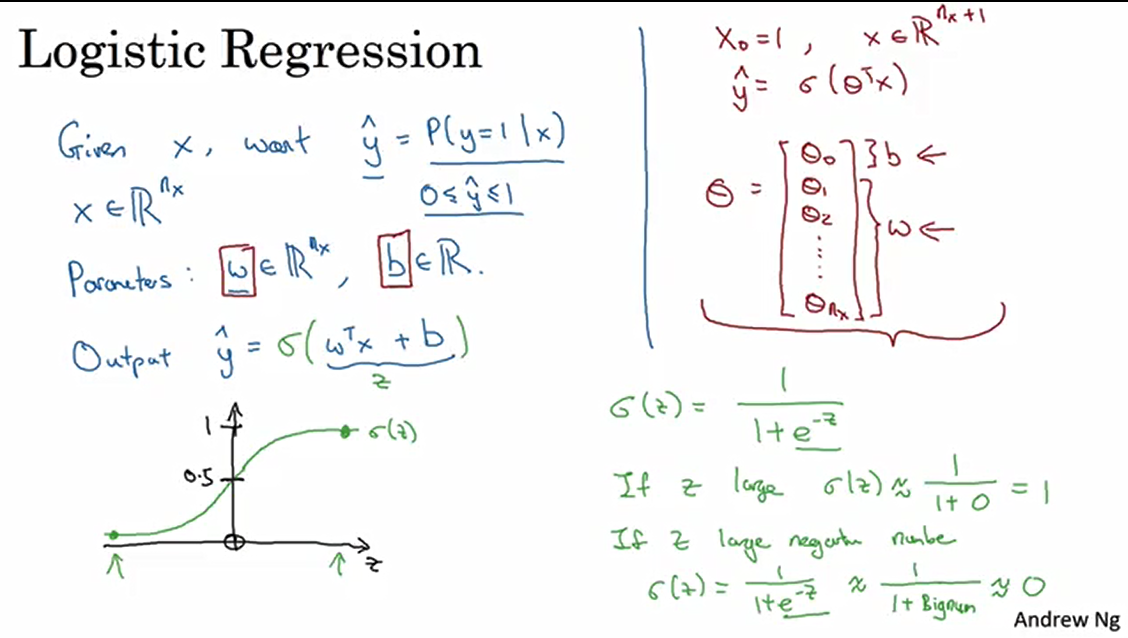 Logistic Regression
Given x, want ŷ = P(y=1|x)
x ∈ ℝ^nx 0 ≤ ŷ ≤ 1
Parameters: w ∈ ℝ^nx, b ∈ ℝ.
Output ŷ = σ(wᵀx + b)
z
1
σ(z)
0.5
z
X₀ = 1, x ∈ ℝ^nx+1
ŷ = σ(θᵀx)
θ = [θ₀ θ₁ θ₂ ⋮ θnx] } b ← } w ←
σ(z) = 1 / (1 + e^-z)
If z large σ(z) ≈ 1 / (1 + 0) = 1
If z large negative number
σ(z) = 1 / (1 + e^-z) ≈ 1 / (1 + Bignum) ≈ 0
Andrew Ng